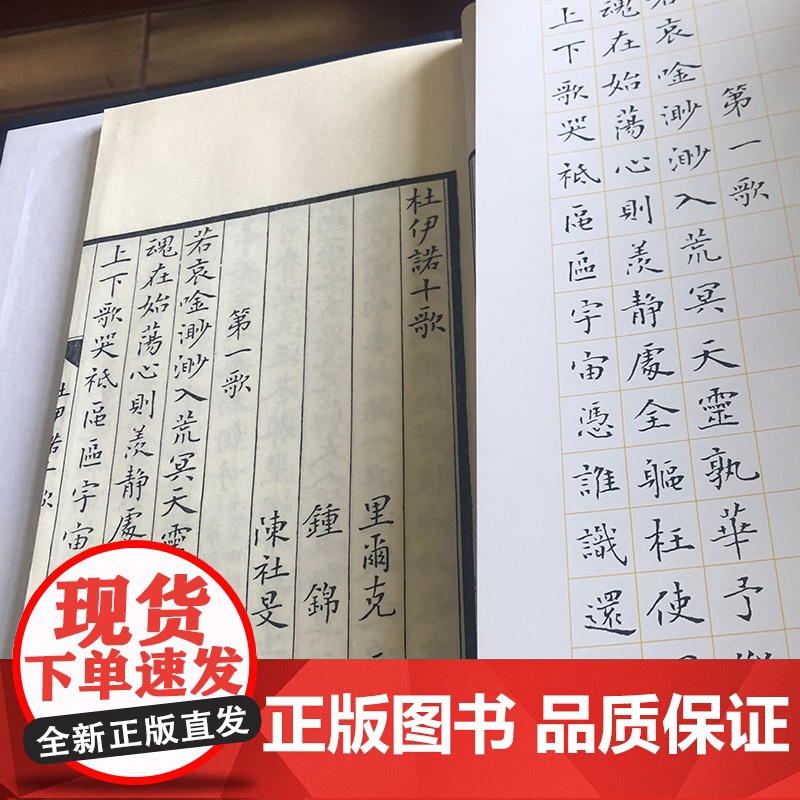 第一歌
若哀唫渺渺入荒冥天靈孰華予
魂在始蕩心則羨靜處全軀枉使
上下歌哭祗區區宇宙憑誰識還
杜伊諾十歌
里爾克
鍾錦
陳社旻
第一歌
若哀唫渺渺入荒冥天靈
魂在始蕩心則羨靜處
上下歌哭祗區區宇宙
杜伊諾一
现货
全新正版直发
正版图书 品质保证